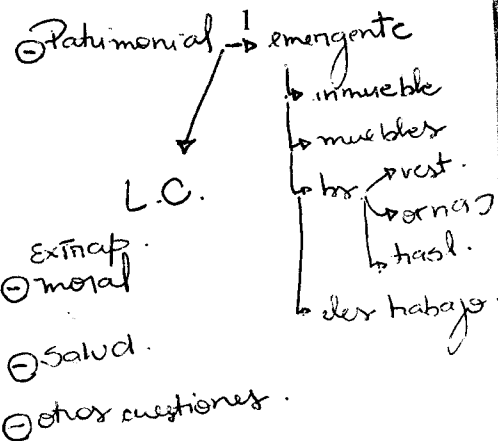 ⊖ Patrimonial 1 → emergente
→ inmueble
→ muebles
→ bs → vest.
→ ornas
→ trasl.
L.C.
→ trabajo
Extrap.
⊖ moral
⊖ Salud.
⊖ otras cuestiones.